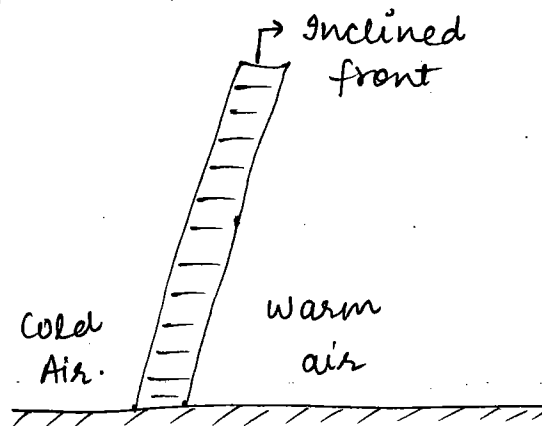 Inclined
front
Cold
Air.
Warm
air